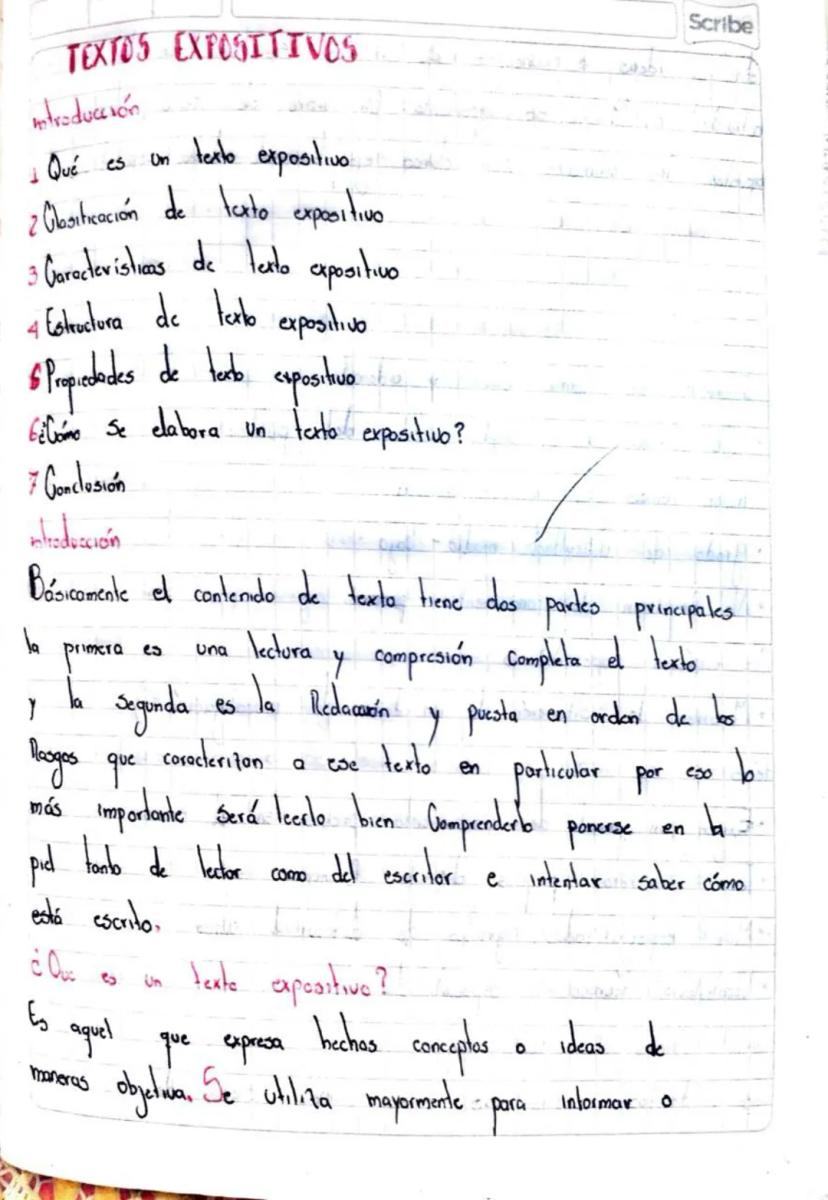 Scribe
TEXTOS EXPOSITIVOS
introducción
1 Qué es un texto expositivo
2 Clasificación de texto expositivo
3 Características de texto expositivo
4 Estructura de texto expositivo
5 Propiedades de texto expositivo
6 ¿Cómo se elabora un texto expositivo?
7 Conclusión
introducción
Básicamente el contenido de texto tiene dos partes principales
la primera es una lectura y compresión completa el texto
y la segunda es la Redacción y puesta en orden de los
Rasgos que caracterizan a ese texto en particular por eso lo
más importante será leerlo bien Comprenderlo ponerse en la
piel tanto de lector como del escritor e intentar saber cómo
está escrito.
¿Que es un texto expositivo?
Es aquel que expresa hechos conceptos o ideas de
maneras objetiva. Se utiliza mayormente para informar o